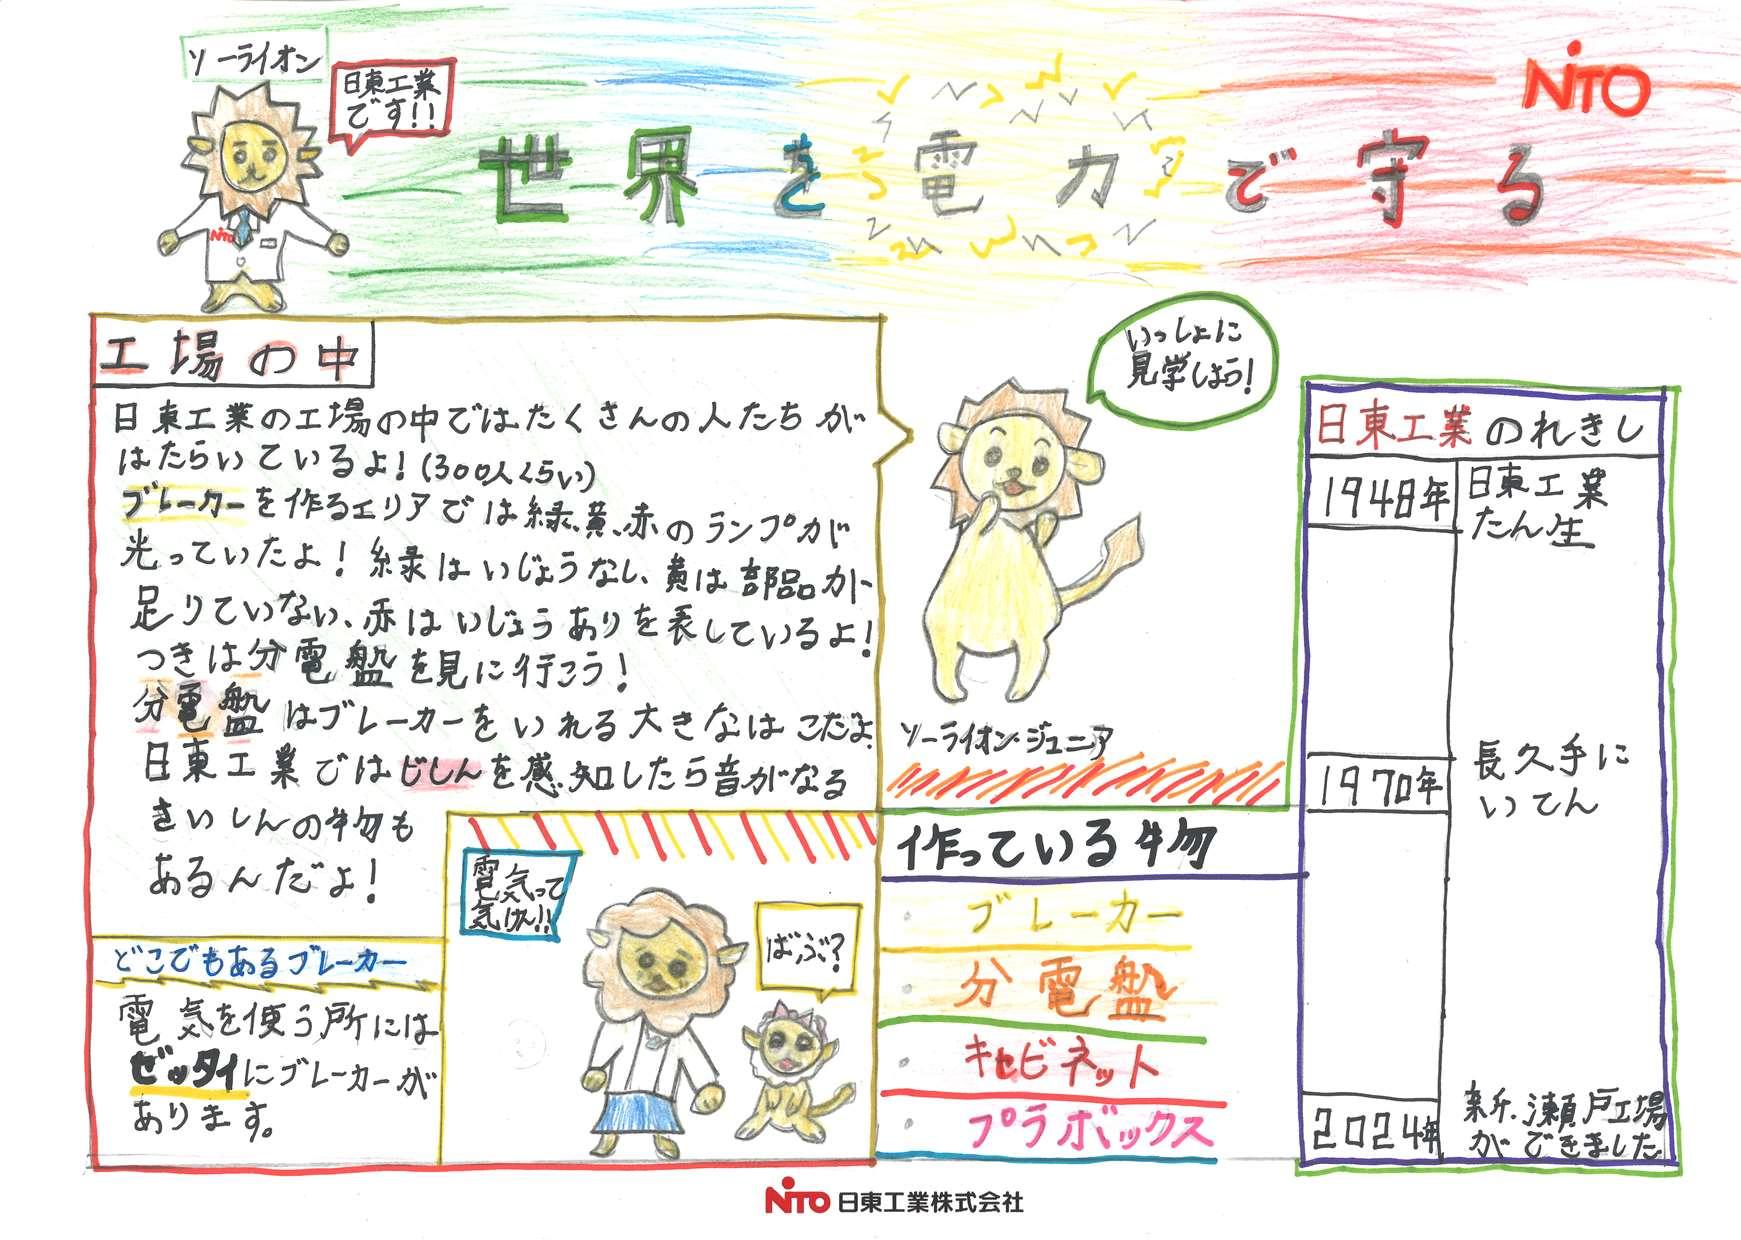 ソーライオン
日東工業
です!!
NiTO
世界を電力で守る
NiTO
工場の中
日東工業の工場の中ではたくさんの人たちが
はたらいているよ!(300人くらい)
ブレーカーを作るエリアでは緑、黄、赤のランプが
光っていたよ!緑はいじょうなし、黄は部品が
足りていない、赤はいじょうありを表しているよ!
つぎは分電盤を見に行こう!
分電盤はブレーカーをいれる大きなはこだよ。
日東工業ではじしんを感知したら音がなる
さいしんの物も
あるんだよ!
いっしょに
見学しよう!
ソーライオン・ジュニア
どこでもあるブレーカー
電気を使う所には
ゼッタイにブレーカーが
あります。
電気って
気けん!!
ばぶ?
作っている物
・ブレーカー
・分電盤
・キャビネット
・プラボックス
日東工業のれきし
1948年
日東工業
たん生
1970年
長久手に
いてん
2024年
新・瀬戸工場
ができました
NiTO 日東工業株式会社